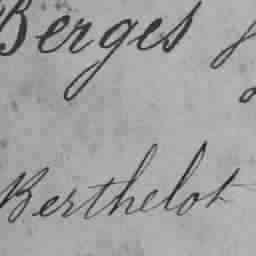 Berges
Berthelot